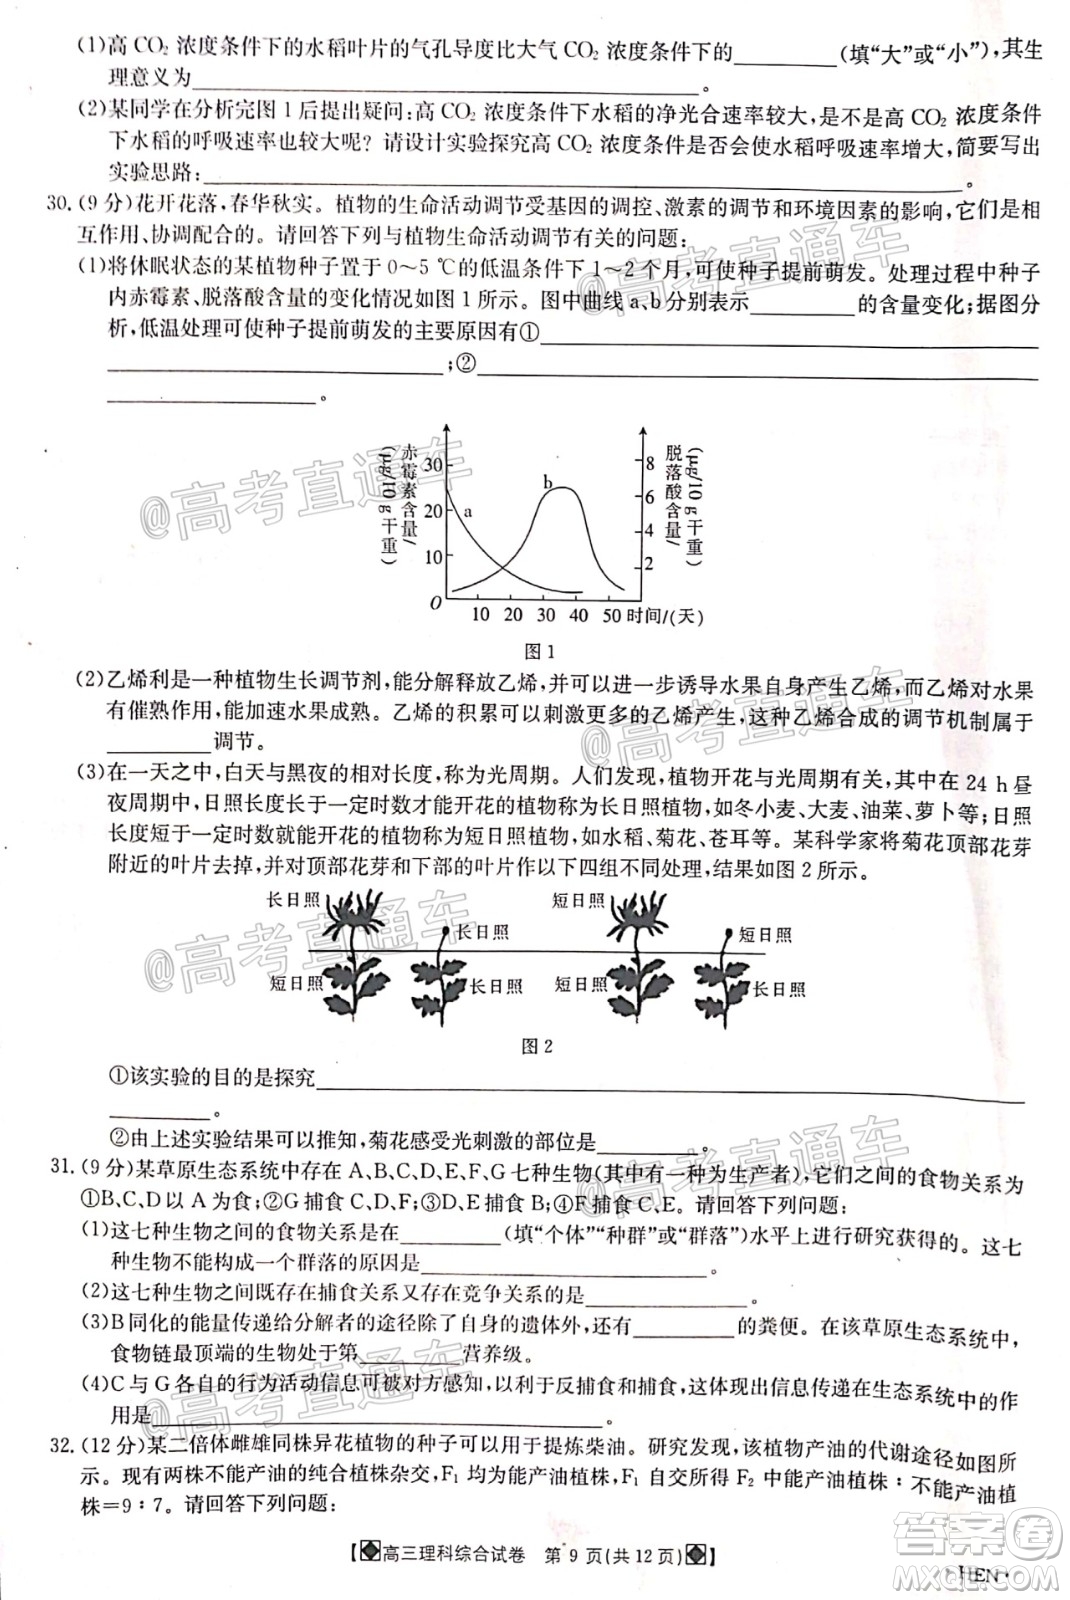 (1)高 CO₂ 浓度条件下的水稻叶片的气孔导度比大气 CO₂ 浓度条件下的________(填“大”或“小”),其生
理意义为________。
(2)某同学在分析完图 1 后提出疑问:高 CO₂ 浓度条件下水稻的净光合速率较大,是不是高 CO₂ 浓度条件
下水稻的呼吸速率也较大呢? 请设计实验探究高 CO₂ 浓度条件是否会使水稻呼吸速率增大,简要写出
实验思路:________。
30.(9 分)花开花落,春华秋实。植物的生命活动调节受基因的调控、激素的调节和环境因素的影响,它们是相
互作用、协调配合的。请回答下列与植物生命活动调节有关的问题:
(1)将休眠状态的某植物种子置于 0~5 ℃的低温条件下 1~2 个月,可使种子提前萌发。处理过程中种子
内赤霉素、脱落酸含量的变化情况如图 1 所示。图中曲线 a、b 分别表示________的含量变化;据图分
析,低温处理可使种子提前萌发的主要原因有①________
________;②________
________。
赤霉素含量/(μg/10 g干重)
30
20
10
O
a
b
脱落酸含量/(μg/10 g干重)
8
6
4
2
10 20 30 40 50 时间/(天)
图 1
(2)乙烯利是一种植物生长调节剂,能分解释放乙烯,并可以进一步诱导水果自身产生乙烯,而乙烯对水果
有催熟作用,能加速水果成熟。乙烯的积累可以刺激更多的乙烯产生,这种乙烯合成的调节机制属于
________调节。
(3)在一天之中,白天与黑夜的相对长度,称为光周期。人们发现,植物开花与光周期有关,其中在 24 h 昼
夜周期中,日照长度长于一定时数才能开花的植物称为长日照植物,如冬小麦、大麦、油菜、萝卜等;日照
长度短于一定时数就能开花的植物称为短日照植物,如水稻、菊花、苍耳等。某科学家将菊花顶部花芽
附近的叶片去掉,并对顶部花芽和下部的叶片作以下四组不同处理,结果如图 2 所示。
长日照 长日照 短日照 短日照
短日照 长日照 短日照 长日照
图 2
①该实验的目的是探究________
________。
②由上述实验结果可以推知,菊花感受光刺激的部位是________。
31.(9 分)某草原生态系统中存在 A、B、C、D、E、F、G 七种生物(其中有一种为生产者),它们之间的食物关系为
①B、C、D 以 A 为食;②G 捕食 C、D、F;③D、E 捕食 B;④F 捕食 C、E。请回答下列问题:
(1)这七种生物之间的食物关系是在________(填“个体”“种群”或“群落”)水平上进行研究获得的。这七
种生物不能构成一个群落的原因是________。
(2)这七种生物之间既存在捕食关系又存在竞争关系的是________。
(3)B 同化的能量传递给分解者的途径除了自身的遗体外,还有________的粪便。在该草原生态系统中,
食物链最顶端的生物处于第________营养级。
(4)C 与 G 各自的行为活动信息可被对方感知,以利于反捕食和捕食,这体现出信息传递在生态系统中的作
用是________。
32.(12 分)某二倍体雌雄同株异花植物的种子可以用于提炼柴油。研究发现,该植物产油的代谢途径如图所
示。现有两株不能产油的纯合植株杂交,F₁ 均为能产油植株,F₁ 自交所得 F₂ 中能产油植株∶不能产油植
株=9∶7。请回答下列问题:
【高三理科综合试卷 第 9 页(共 12 页)】
·HEN·
@高考直通车
@高考直通车
@高考直通车
@高考直通车
@高考直通车
@高考直通车
答案圈
MXQE.COM